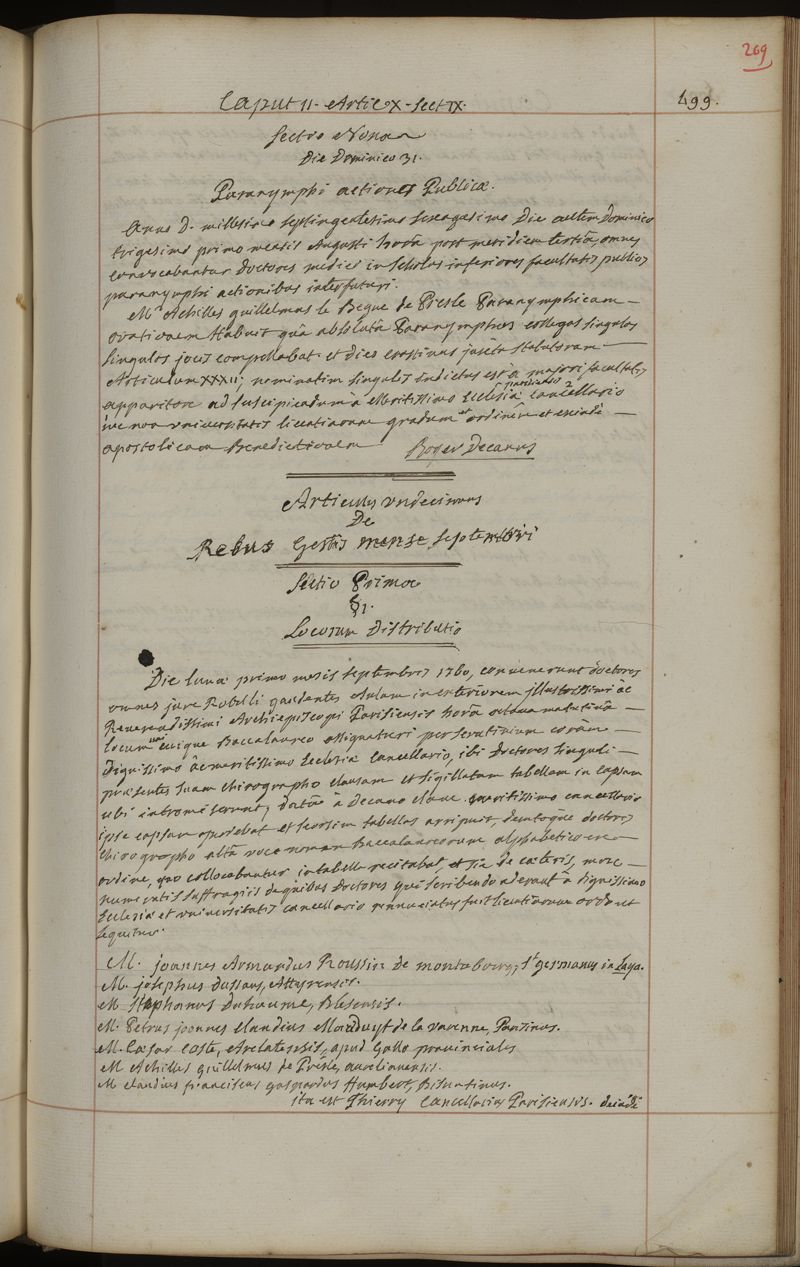 269
Caput 11. Artic X. Sect IX.
499.
Sectio Nona
Die Dominico 31.
Paranymphi actiones Publicæ.
Anno D. millesimo septingentesimo sexagesimo Die autem Dominico
trigesimo primo mensis Augusti horâ post meridiem tertiâ, omnes
convocabantur doctores medici in scholas inferiores facultatis publicis
paranymphi actionibus interfuturi.
Mr Achilles guillelmus le Begue de Presle Paranymphicam
orationem habuit quâ absolutâ Paranymphus collegas singulos
singulis jocis comprobabat et dies crastinus juxta statutorum
Articulum XXXII; nominatim singulis indictus est a majori facultatis
apparitore ad suscipiendum à Meritissimo Ecclesiæ parisiensis Cancellario
nec non universitatis licentiarum gradum et ordinem et exinde
apostolicam Benedictionem Boyer Decanus
Articulus undecimus
De
Rebus Gestis mense septembri
Sectio Prima
§1.
Locorum Distributio
Die lunæ primo mesis septembris 1760, convenerunt doctores
omnes jure Rotulli gaudentes Aulam in exteriorem illustrissimi ac
Reverendissimi Archiepiscopi Parisiensis horâ octava matutinâ
locum cuique Baccalaureo assignaturi per scrutinium coràm
Dignissimo ac meritissimo Ecclesiæ Cancellario, ibi Doctores singuli
præsentes suam chirographo clausam et sigillatam tabellam in capsam
ubi intromiserunt, datâ à decano clave meritissimo cancellario
ipse capsam aperiebat et seorsim tabellas arripuit, demtoque doctoris
chirographo altâ voce nomen Baccalaureorum alphabetico
ordine, quo collocabantur in tabella recitabat, et sic de cæteris, more
numeratis suffragiis de quibus Doctores qui scribendo aderant à dignissimo
Ecclesiæ et universitatis cancellario renunciatus fuit licentiarum ordo ut
sequitur.
M. joannes Armandus Roussin de montabourg, St germanus in Laya.
M. josephus Dussans, Attyrensis.
M. Stephanus Duhaume, Blesensis.
M. Petrus joannes Claudius Mauduyt de la varenne, Parisinus.
M. Cæsar Coste, Arelatensis, apud Gallo provinciales
M Achilles guillelmus de Presle, aurelianensis.
M Claudius franciscus gaspardus Humbert, Bisuntinus.
ita est Thierry Cancellarius Parisiensis. deindè